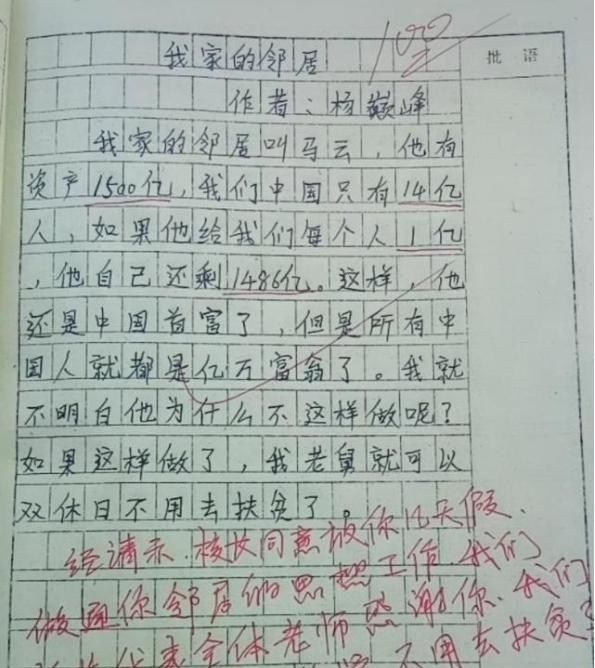 我家的邻居
100
批语
作者:杨巅峰
我家的邻居叫马云,他有
资产1500亿,我们中国只有14亿
人,如果他给我们每个人1亿
,他自己还剩1486亿。这样,他
还是中国首富了,但是所有中
国人就都是亿万富翁了。我就
不明白他为什么不这样做呢?
如果这样做了,我老舅就可以
双休日不用去扶贫了。
经请示,校长同意放你几天假,
做通你邻居的思想工作,我们
代表全体老师感谢你,我们
不用去扶贫了